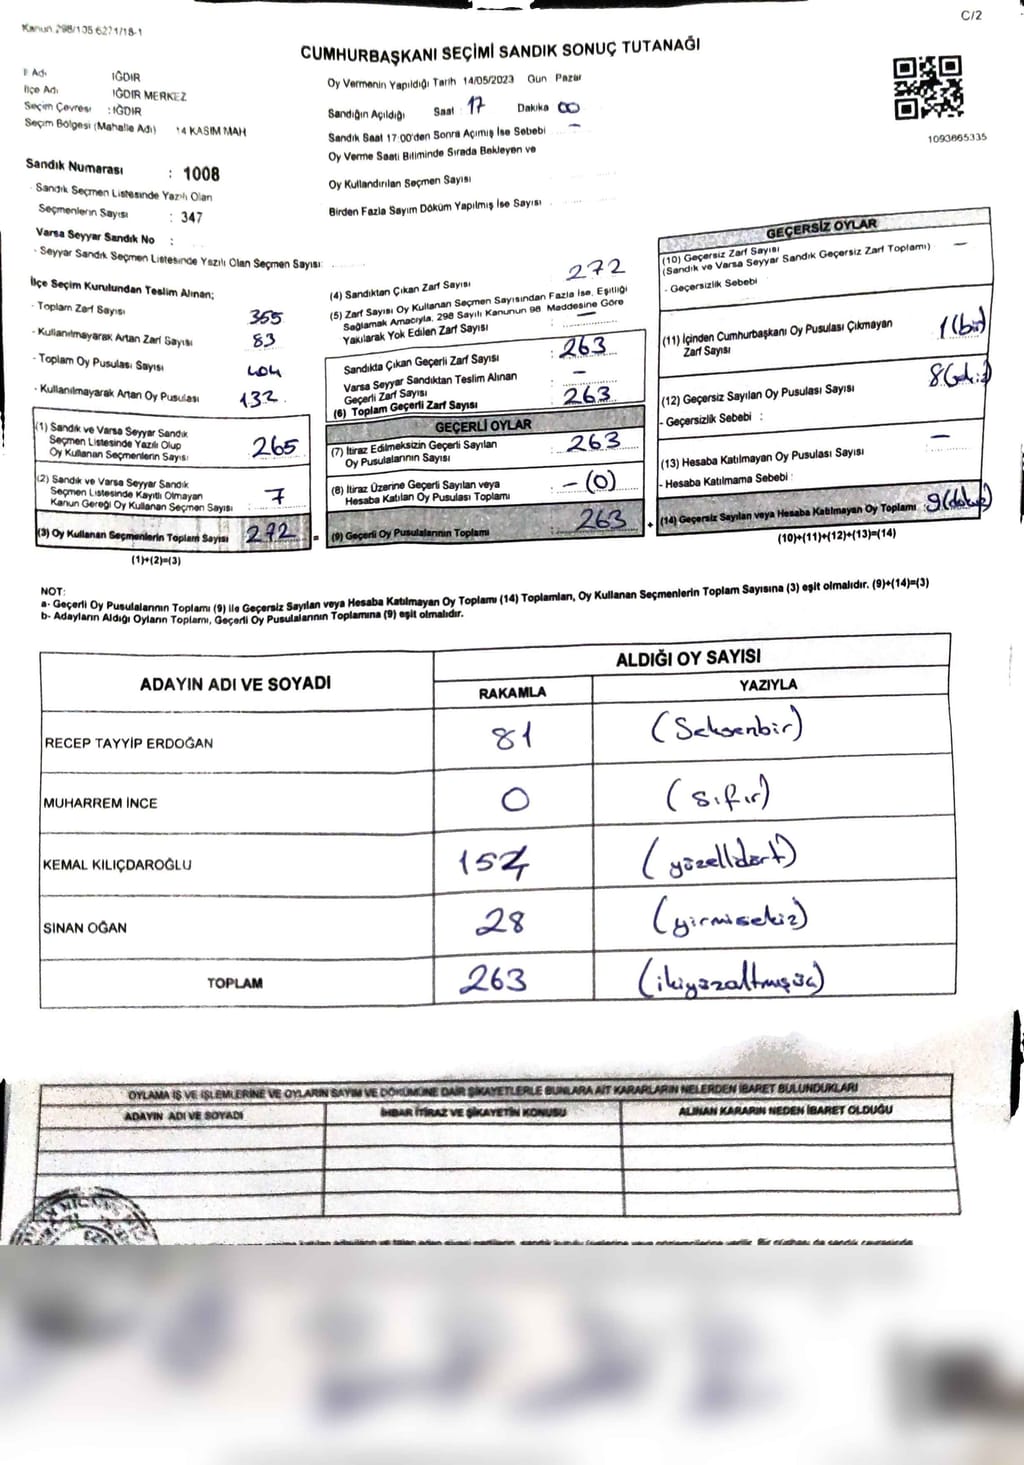 C/2
Kanun 298/105 6271/18-1
CUMHURBAŞKANI SEÇİMİ SANDIK SONUÇ TUTANAĞI
İl Adı IĞDIR
İlçe Adı IĞDIR MERKEZ
Seçim Çevresi : IĞDIR
Seçim Bölgesi (Mahalle Adı) 14 KASIM MAH
Sandık Numarası : 1008
- Sandık Seçmen Listesinde Yazılı Olan
Seçmenlerin Sayısı : 347
Varsa Seyyar Sandık No :
- Seyyar Sandık Seçmen Listesinde Yazılı Olan Seçmen Sayısı:
Oy Vermenin Yapıldığı Tarih 14/05/2023 Gün Pazar
Sandığın Açıldığı Saat : 17 Dakika 00
Sandık Saat 17:00'den Sonra Açımış İse Sebebi –
Oy Verme Saati Bitiminde Sırada Bekleyen ve
Oy Kullandırılan Seçmen Sayısı
Birden Fazla Sayım Döküm Yapılmış İse Sayısı
1093865335
İlçe Seçim Kurulundan Teslim Alınan;
- Toplam Zarf Sayısı 355
- Kullanılmayarak Artan Zarf Sayısı 83
- Toplam Oy Pusulası Sayısı 404
- Kullanılmayarak Artan Oy Pusulası 132
(1) Sandık ve Varsa Seyyar Sandık
Seçmen Listesinde Yazılı Olup
Oy Kullanan Seçmenlerin Sayısı 265
(2) Sandık ve Varsa Seyyar Sandık
Seçmen Listesinde Kayıtlı Olmayan
Kanun Gereği Oy Kullanan Seçmen Sayısı : 7
(3) Oy Kullanan Seçmenlerin Toplam Sayısı 272
(1)+(2)=(3)
(4) Sandıktan Çıkan Zarf Sayısı 272
(5) Zarf Sayısı Oy Kullanan Seçmen Sayısından Fazla İse, Eşitliği
Sağlamak Amacıyla, 298 Sayılı Kanunun 98. Maddesine Göre
Yakılarak Yok Edilen Zarf Sayısı : –
Sandıkta Çıkan Geçerli Zarf Sayısı : 263
Varsa Seyyar Sandıktan Teslim Alınan
Geçerli Zarf Sayısı –
(6) Toplam Geçerli Zarf Sayısı : 263
GEÇERLİ OYLAR
(7) İtiraz Edilmeksizin Geçerli Sayılan
Oy Pusulalarının Sayısı : 263
(8) İtiraz Üzerine Geçerli Sayılan veya
Hesaba Katılan Oy Pusulası Toplamı : – (0)
= (9) Geçerli Oy Pusulalarının Toplamı : 263 +
GEÇERSİZ OYLAR
(10) Geçersiz Zarf Sayısı –
(Sandık ve Varsa Seyyar Sandık Geçersiz Zarf Toplamı)
- Geçersizlik Sebebi :
(11) İçinden Cumhurbaşkanı Oy Pusulası Çıkmayan
Zarf Sayısı 1 (bir)
(12) Geçersiz Sayılan Oy Pusulası Sayısı 8 (sekiz)
- Geçersizlik Sebebi :
(13) Hesaba Katılmayan Oy Pusulası Sayısı –
- Hesaba Katılmama Sebebi :
(14) Geçersiz Sayılan veya Hesaba Katılmayan Oy Toplamı : 9 (dokuz)
(10)+(11)+(12)+(13)=(14)
NOT:
a- Geçerli Oy Pusulalarının Toplamı (9) ile Geçersiz Sayılan veya Hesaba Katılmayan Oy Toplamı (14) Toplamları, Oy Kullanan Seçmenlerin Toplam Sayısına (3) eşit olmalıdır. (9)+(14)=(3)
b- Adayların Aldığı Oyların Toplamı, Geçerli Oy Pusulalarının Toplamına (9) eşit olmalıdır.
ADAYIN ADI VE SOYADI ALDIĞI OY SAYISI
RAKAMLA YAZIYLA
RECEP TAYYİP ERDOĞAN 81 (Seksenbir)
MUHARREM İNCE 0 (sıfır)
KEMAL KILIÇDAROĞLU 154 (yüzellidört)
SİNAN OĞAN 28 (yirmisekiz)
TOPLAM 263 (ikiyüzaltmışüç)
OYLAMA İŞ VE İŞLEMLERİNE VE OYLARIN SAYIM VE DÖKÜMÜNE DAİR ŞİKAYETLERLE BUNLARA AİT KARARLARIN NELERDEN İBARET BULUNDUKLARI
ADAYIN ADI VE SOYADI İHBAR İTİRAZ VE ŞİKAYETİN KONUSU ALINAN KARARIN NEDEN İBARET OLDUĞU